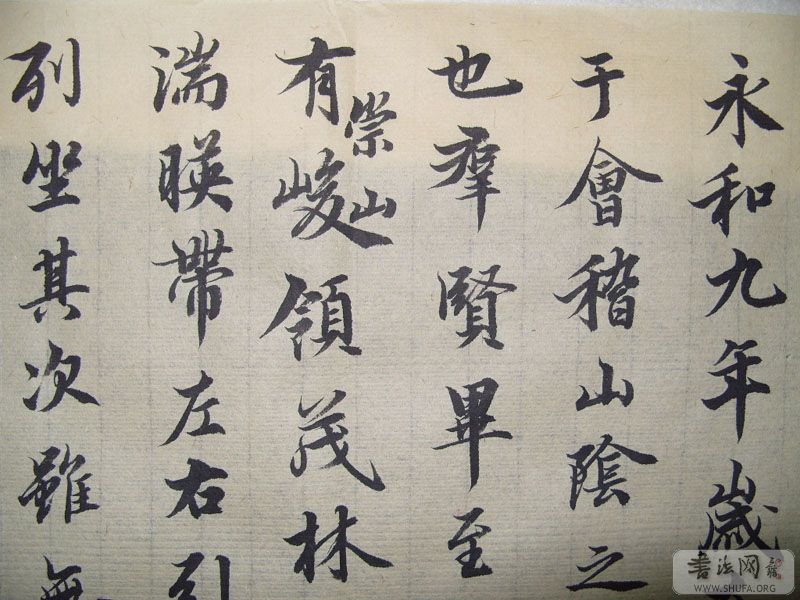 永和九年歲
于會稽山陰之
也羣賢畢至
有崇山峻領茂林
湍暎帶左右引
列坐其次雖無
書法网
WWW.SHUFA.ORG